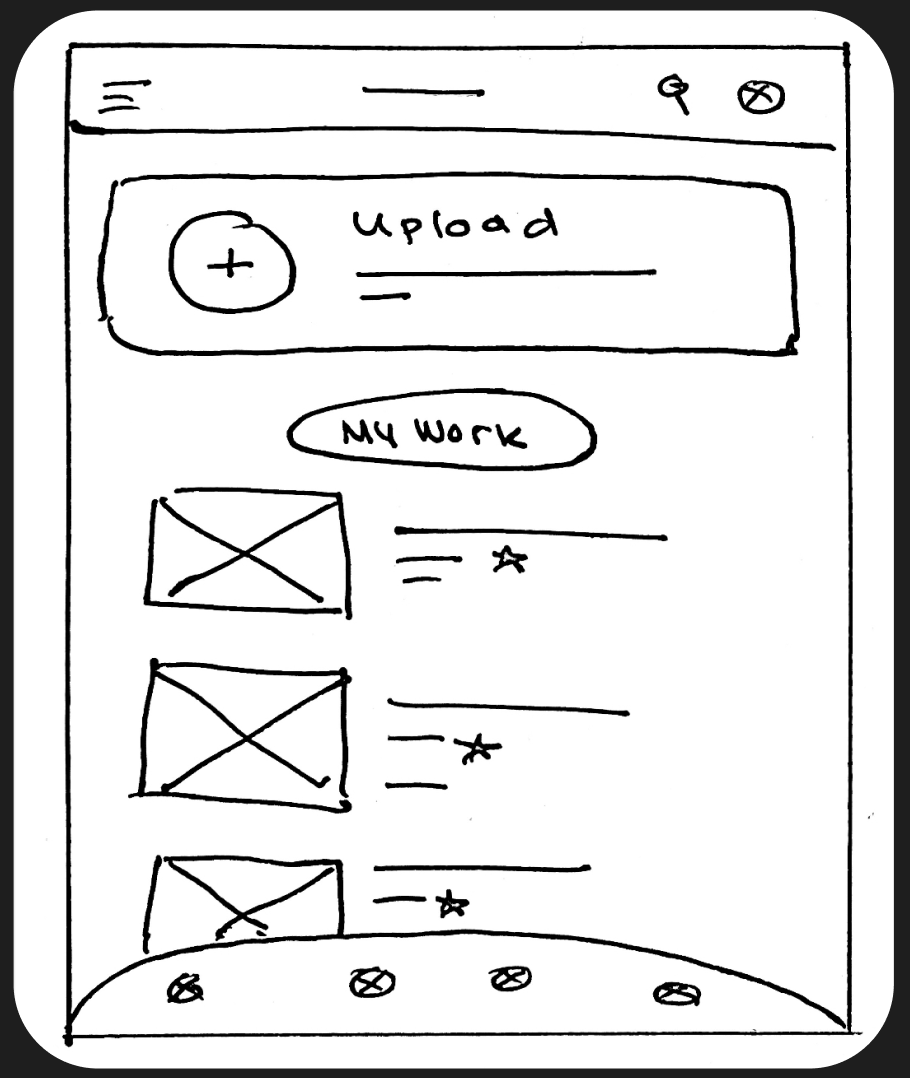 Upload
My Work